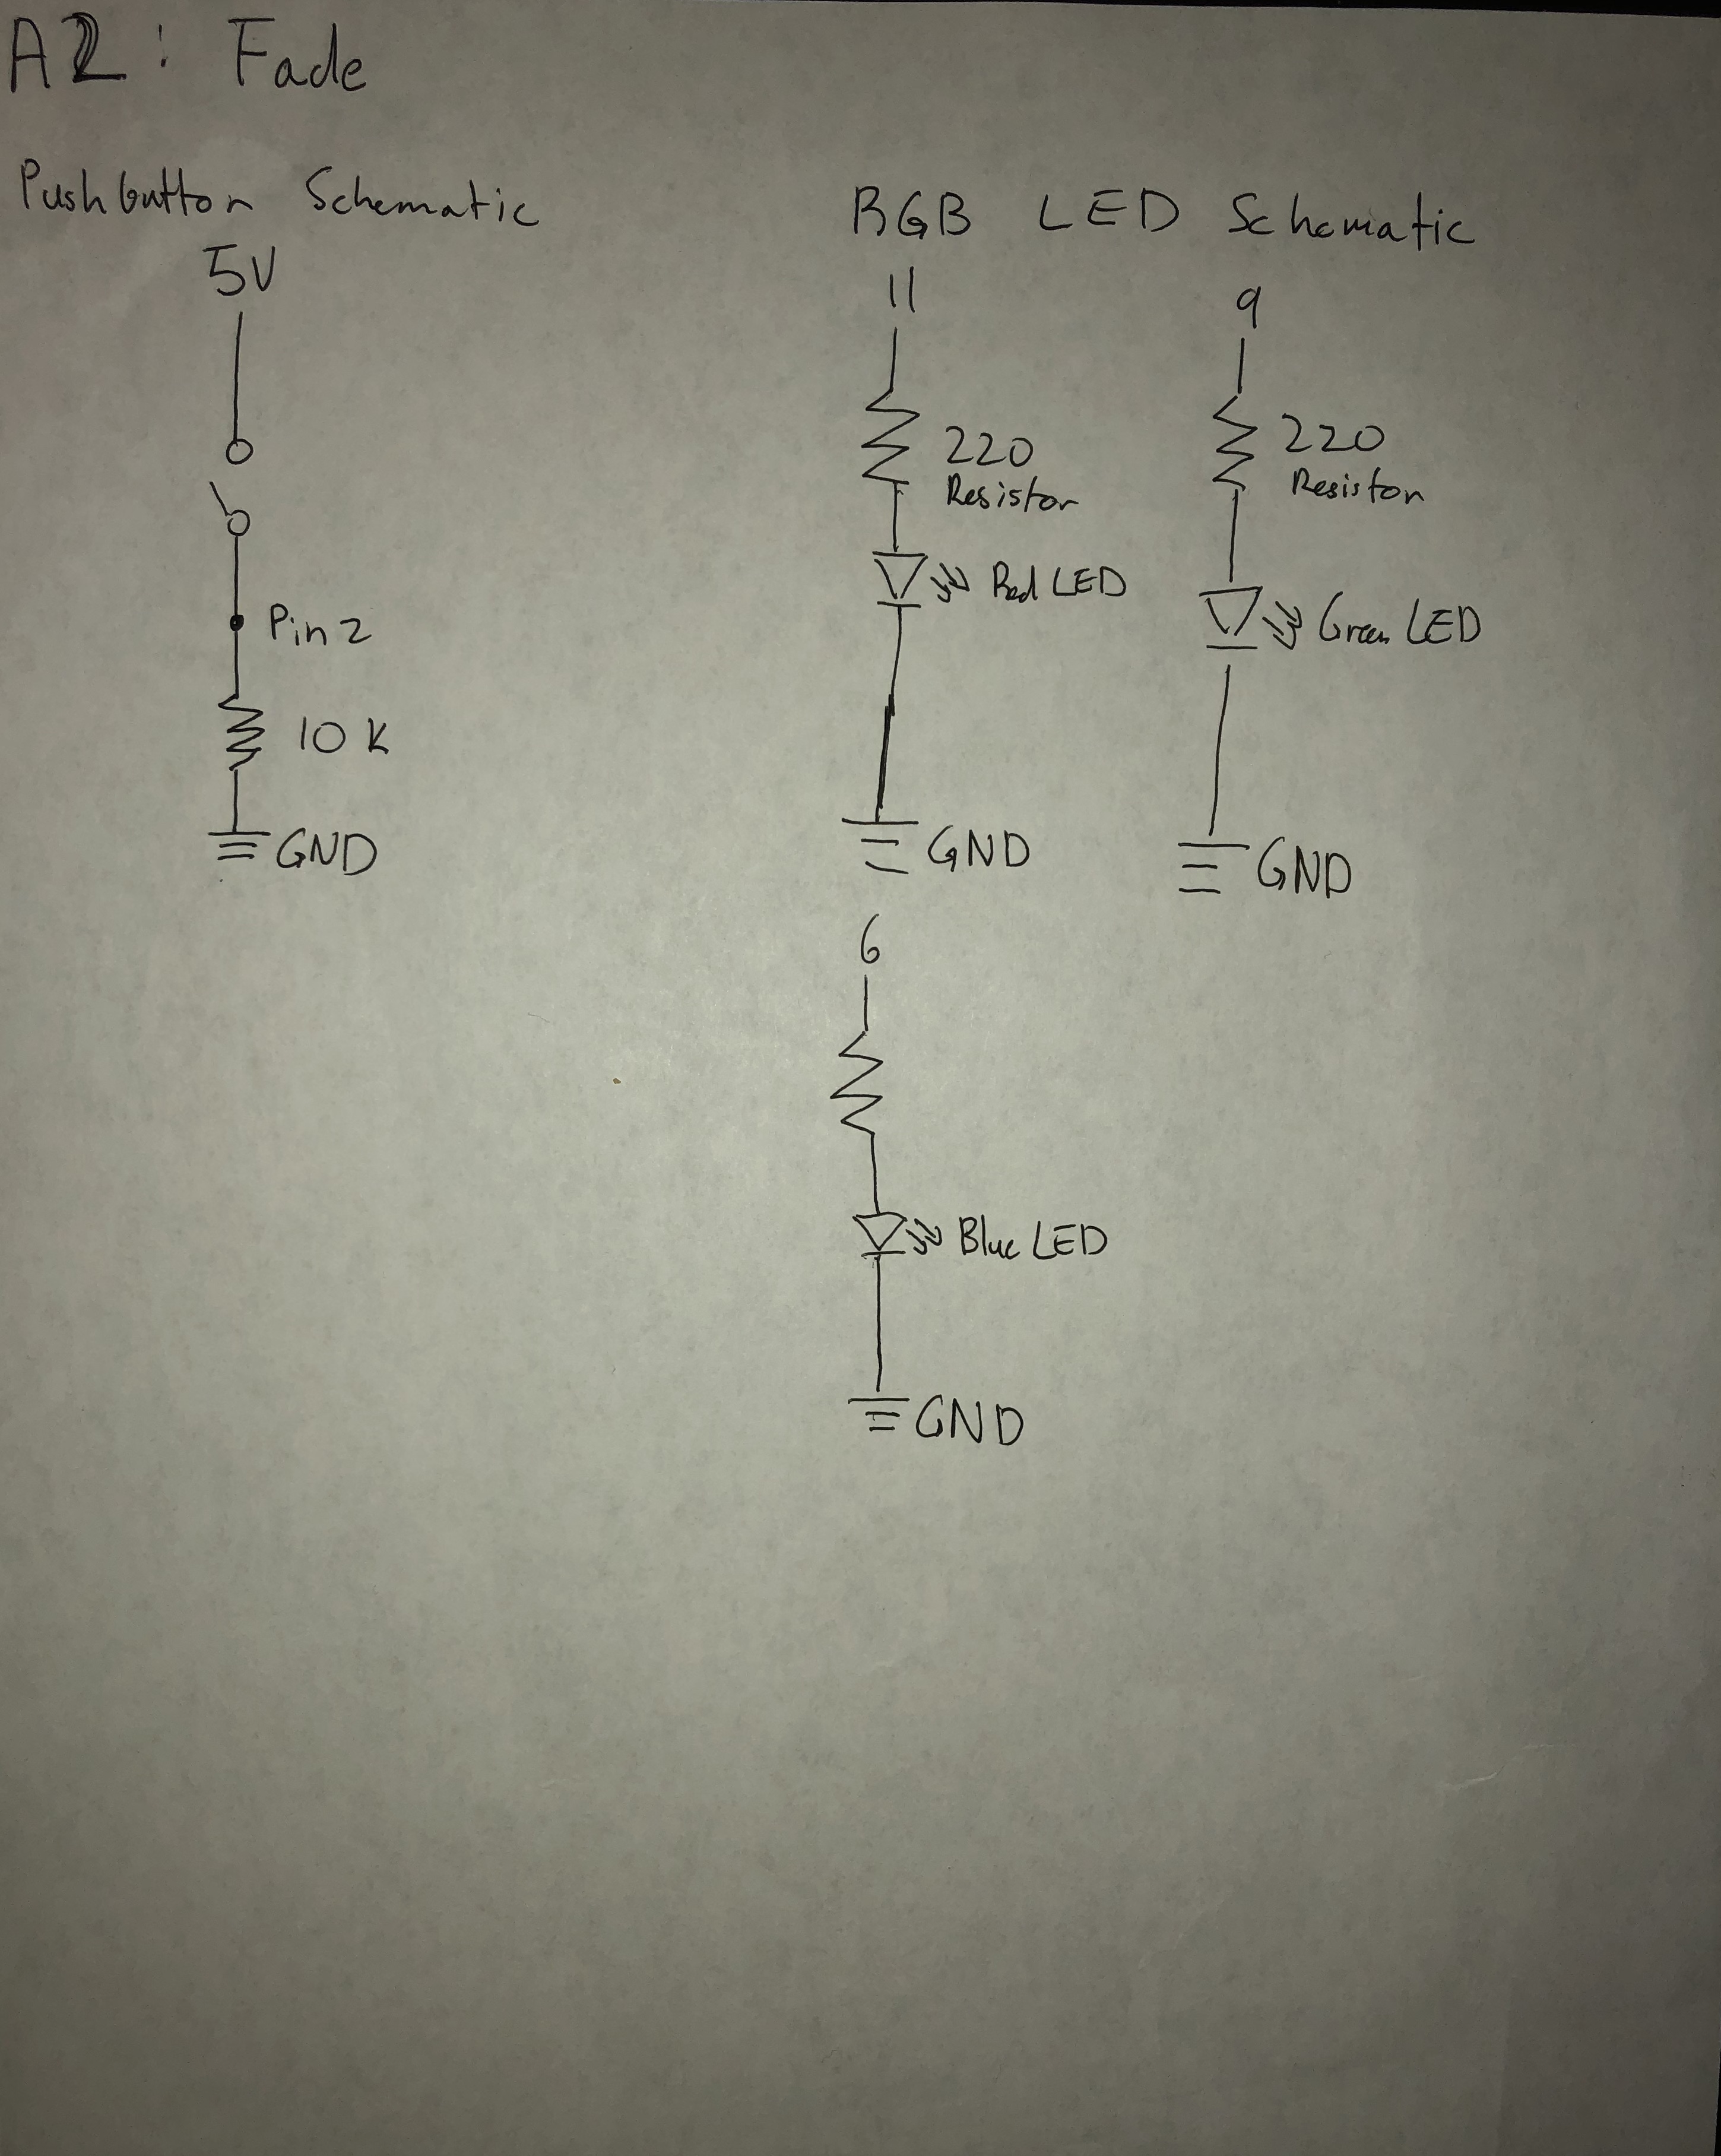 A2: Fade
Pushbutton Schematic
5V
Pin 2
10 K
GND
RGB LED Schematic
11
220
Resistor
Red LED
GND
9
220
Resistor
Green LED
GND
6
Blue LED
GND